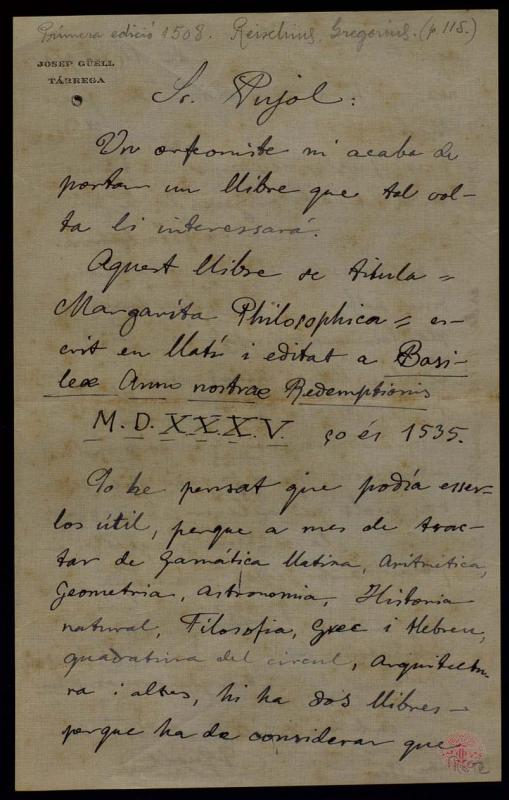 Primera edició 1508. Reischius, Gregorius. (p. 115.)
JOSEP GÜELL
TÀRREGA
Sr. Pujol:
Un orfeoniste m'acaba de
portar un llibre que tal vol-
ta li interessará.
Aquest llibre se titula =
Margarita Philosophica = es-
crit en llatí i editat a Basi-
leae Anno nostrae Redemptionis
M.D.XXXV. ço és 1535.
Jo he pensat que podía esser-
los útil, perque a mes de trac-
tar de Gamática llatina, Aritmetica,
Geometria, astronomia, Historia
natural, Filosofia, Grec i Hebreu,
quadatura del circul, arquitectu-
ra i altres, hi ha dos llibres-
perque ha de considerar que